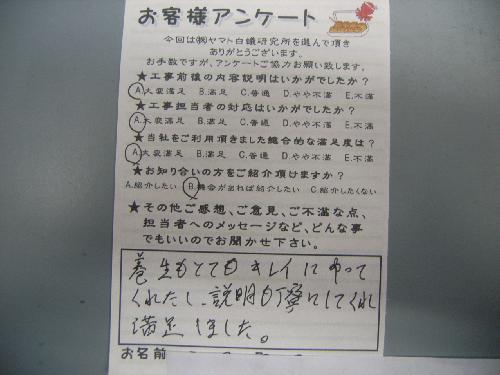 お客様アンケート
今回は㈱ヤマト白蟻研究所を選んで頂き
ありがとうございます。
お手数ですが、アンケートご協力お願い致します。
★工事前後の内容説明はいかがでしたか？
A.大変満足 B.満足 C.普通 D.やや不満 E.不満
★工事担当者の対応はいかがでしたか？
A.大変満足 B.満足 C.普通 D.やや不満 E.不満
★当社をご利用頂きました総合的な満足度は？
A.大変満足 B.満足 C.普通 D.やや不満 E.不満
★お知り合いの方をご紹介頂けますか？
A.紹介したい B.機会があれば紹介したい C.紹介したくない
★その他ご感想、ご意見、ご不満な点、
担当者へのメッセージなど、どんな事
でもいいのでお聞かせ下さい。
養生もとてもキレイにやって
くれたし、説明も丁寧にしてくれ
満足しました。
お名前